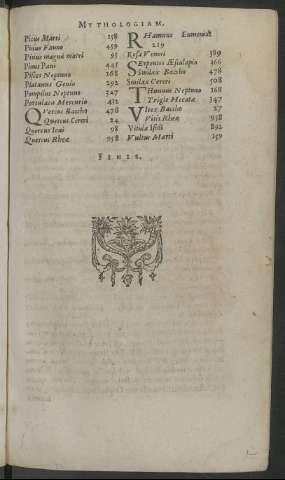 MYTHOLOGIAM.
Picus Marti 258
Picus Fauno 459
Pinus magnæ matri 95
Pinus Pani 445
Pisces Neptuno 168
Platanus Genio 292
Pompilus Neptuno 347
Porculaca Mercurio 432
Quercus Baccho 478
Quercus Cereri 24
Quercus Ioui 98
Quercus Rheæ 958
RHamnus Eumenid.
219
Rosa Veneri 389
SErpentes Æsculapio 366
Smilax Baccho 478
Smilax Cereri 508
THunnus Neptuno 168
Trigla Hecatæ 347
VItex Baccho 27
Vitis Rheæ 958
Vitula Isidi 892
Vultur Marti 259
FINIS.